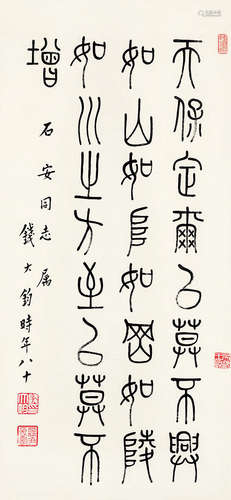 天保定爾以莫不興
如山如阜如岡如陵
如川之方至以莫不
增
石安同志属
錢大鈞時年八十